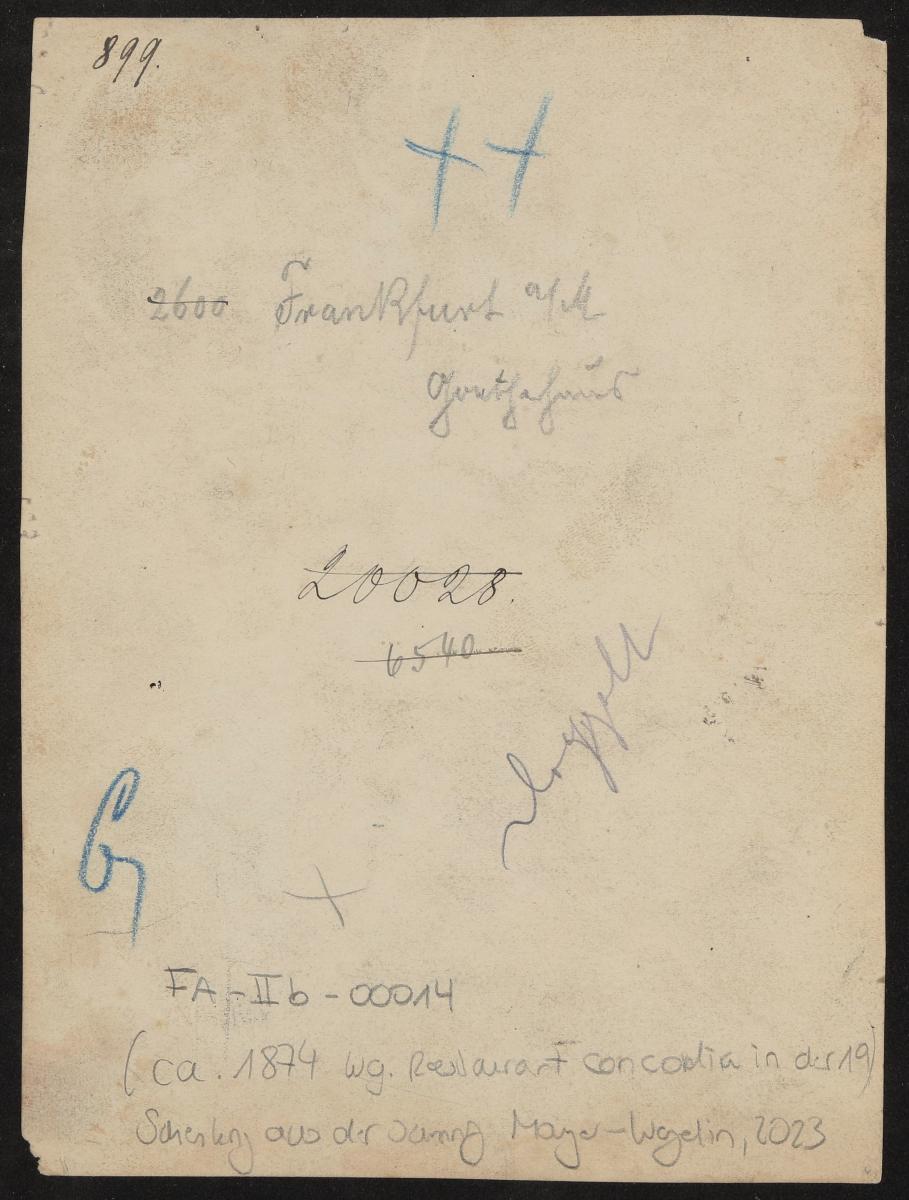 899.
++
2600 Frankfurt a/M
Goethehaus
20028.
6540
+
FA-IIb-00014
(ca. 1874 wg. Restaurant Concordia in der 19)
Schenkung aus der Samng Mayer-Wegelin, 2023